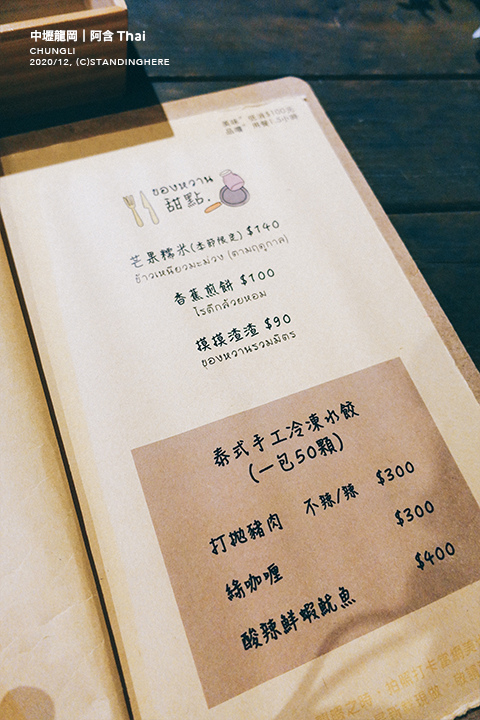 中壢龍岡｜阿含 Thai
CHUNGLI
2020/12, (C)STANDINGHERE
美味"低消$100元
品嚐"用餐1.5小時
ของหวาน
甜點.
芒果糯米(季節限定) $140
ข้าวเหนียวมะม่วง (ตามฤดูกาล)
香蕉煎餅 $100
โรตีกล้วยหอม
摸摸渣渣 $90
ของหวานรวมมิตร
泰式手工冷凍水餃
(一包50顆)
打拋豬肉 不辣/辣 $300
綠咖喱 $300
酸辣鮮蝦魷魚 $400